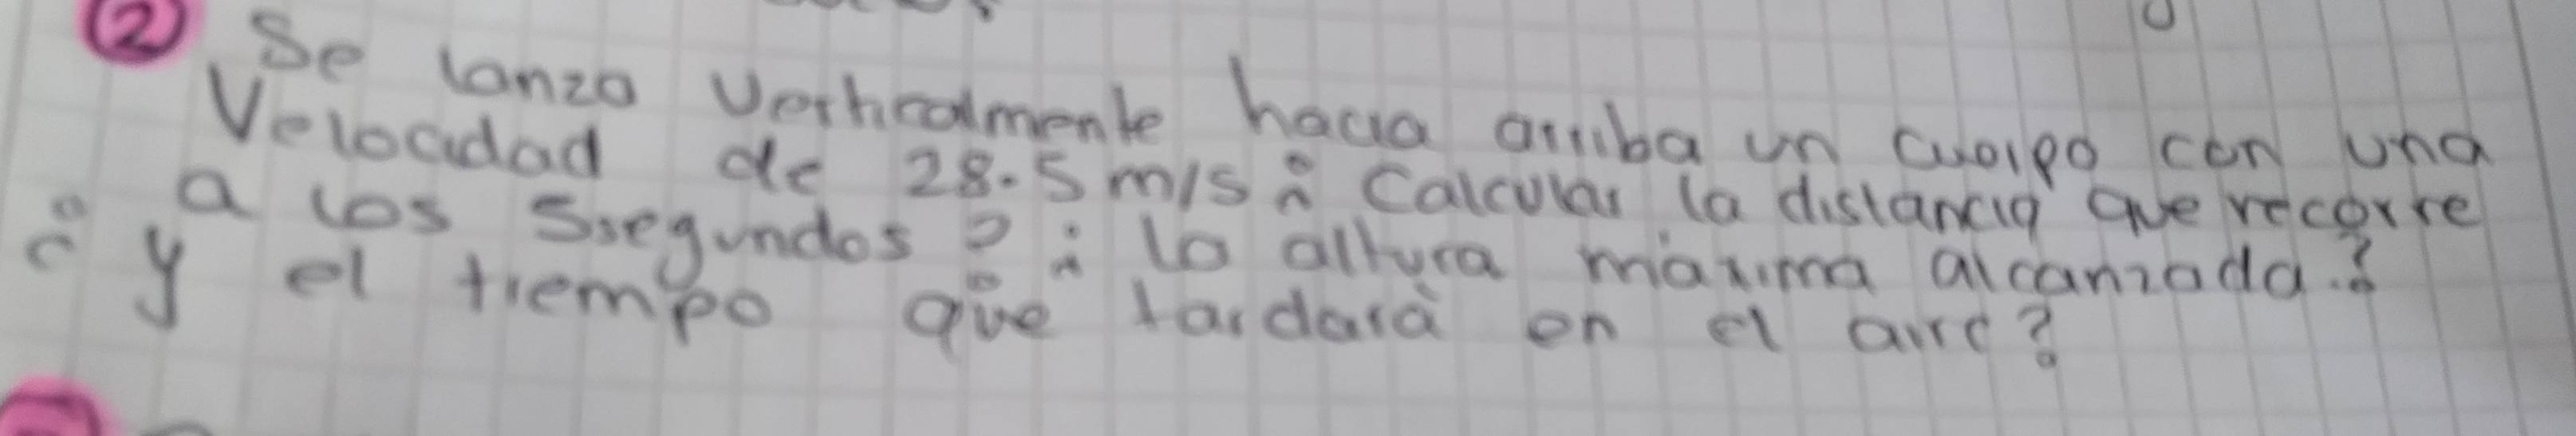 ② Se lanzo Verticalmente hacia arriba un cuerpo con una
Velocidad de 28.5 m/s ¿ Calcular la distancia que recorre
a los 5segundos ? ¿ la altura máxima alcanzada ?
¿ y el tiempo que tardará en el aire ?